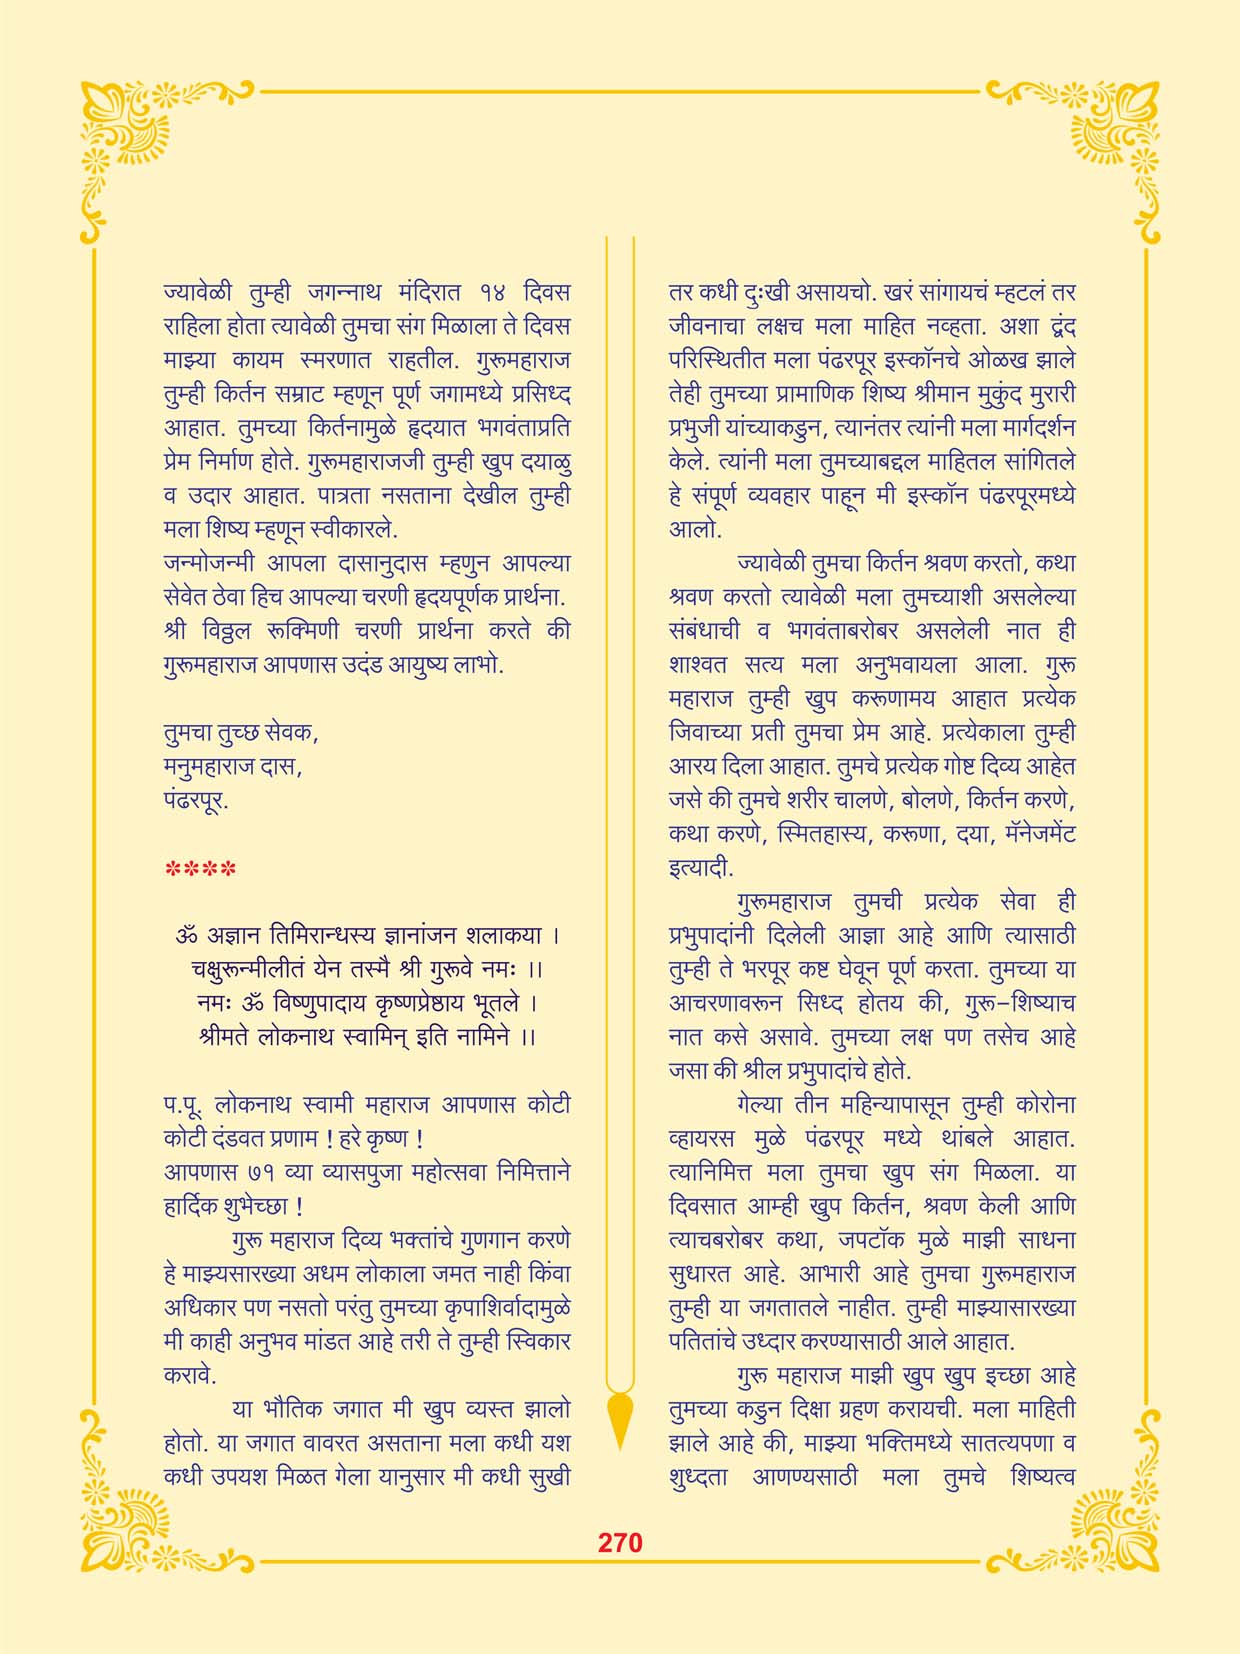 ज्यावेळी तुम्ही जगन्नाथ मंदिरात १४ दिवस
राहिला होता त्यावेळी तुमचा संग मिळाला ते दिवस
माझ्या कायम स्मरणात राहतील. गुरूमहाराज
तुम्ही किर्तन सम्राट म्हणून पूर्ण जगामध्ये प्रसिध्द
आहात. तुमच्या किर्तनामुळे हृदयात भगवंताप्रति
प्रेम निर्माण होते. गुरूमहाराजजी तुम्ही खुप दयाळु
व उदार आहात. पात्रता नसताना देखील तुम्ही
मला शिष्य म्हणून स्वीकारले.
जन्मोजन्मी आपला दासानुदास म्हणुन आपल्या
सेवेत ठेवा हिच आपल्या चरणी हृदयपूर्णक प्रार्थना.
श्री विठ्ठल रूक्मिणी चरणी प्रार्थना करते की
गुरूमहाराज आपणास उदंड आयुष्य लाभो.
तुमचा तुच्छ सेवक,
मनुमहाराज दास,
पंढरपूर.
****
ॐ अज्ञान तिमिरान्धस्य ज्ञानांजन शलाकया ।
चक्षुरून्मीलीतं येन तस्मै श्री गुरूवे नमः ।।
नमः ॐ विष्णुपादाय कृष्णप्रेष्ठाय भूतले ।
श्रीमते लोकनाथ स्वामिन् इति नामिने ।।
प.पू. लोकनाथ स्वामी महाराज आपणास कोटी
कोटी दंडवत प्रणाम ! हरे कृष्ण !
आपणास ७१ व्या व्यासपुजा महोत्सवा निमित्ताने
हार्दिक शुभेच्छा !
गुरू महाराज दिव्य भक्तांचे गुणगान करणे
हे माझ्यसारख्या अधम लोकाला जमत नाही किंवा
अधिकार पण नसतो परंतु तुमच्या कृपाशिर्वादामुळे
मी काही अनुभव मांडत आहे तरी ते तुम्ही स्विकार
करावे.
या भौतिक जगात मी खुप व्यस्त झालो
होतो. या जगात वावरत असताना मला कधी यश
कधी उपयश मिळत गेला यानुसार मी कधी सुखी
तर कधी दुःखी असायचो. खरं सांगायचं म्हटलं तर
जीवनाचा लक्षच मला माहित नव्हता. अशा द्वंद
परिस्थितीत मला पंढरपूर इस्कॉनचे ओळख झाले
तेही तुमच्या प्रामाणिक शिष्य श्रीमान मुकुंद मुरारी
प्रभुजी यांच्याकडुन, त्यानंतर त्यांनी मला मार्गदर्शन
केले. त्यांनी मला तुमच्याबद्दल माहितल सांगितले
हे संपूर्ण व्यवहार पाहून मी इस्कॉन पंढरपूरमध्ये
आलो.
ज्यावेळी तुमचा किर्तन श्रवण करतो, कथा
श्रवण करतो त्यावेळी मला तुमच्याशी असलेल्या
संबंधाची व भगवंताबरोबर असलेली नात ही
शाश्वत सत्य मला अनुभवायला आला. गुरू
महाराज तुम्ही खुप करूणामय आहात प्रत्येक
जिवाच्या प्रती तुमचा प्रेम आहे. प्रत्येकाला तुम्ही
आरय दिला आहात. तुमचे प्रत्येक गोष्ट दिव्य आहेत
जसे की तुमचे शरीर चालणे, बोलणे, किर्तन करणे,
कथा करणे, स्मितहास्य, करूणा, दया, मॅनेजमेंट
इत्यादी.
गुरूमहाराज तुमची प्रत्येक सेवा ही
प्रभुपादांनी दिलेली आज्ञा आहे आणि त्यासाठी
तुम्ही ते भरपूर कष्ट घेवून पूर्ण करता. तुमच्या या
आचरणावरून सिध्द होतय की, गुरू-शिष्याच
नात कसे असावे. तुमच्या लक्ष पण तसेच आहे
जसा की श्रील प्रभुपादांचे होते.
गेल्या तीन महिन्यापासून तुम्ही कोरोना
व्हायरस मुळे पंढरपूर मध्ये थांबले आहात.
त्यानिमित्त मला तुमचा खुप संग मिळला. या
दिवसात आम्ही खुप किर्तन, श्रवण केली आणि
त्याचबरोबर कथा, जपटॉक मुळे माझी साधना
सुधारत आहे. आभारी आहे तुमचा गुरूमहाराज
तुम्ही या जगतातले नाहीत. तुम्ही माझ्यासारख्या
पतितांचे उध्दार करण्यासाठी आले आहात.
गुरू महाराज माझी खुप खुप इच्छा आहे
तुमच्या कडुन दिक्षा ग्रहण करायची. मला माहिती
झाले आहे की, माझ्या भक्तिमध्ये सातत्यपणा व
शुध्दता आणण्यासाठी मला तुमचे शिष्यत्व
270